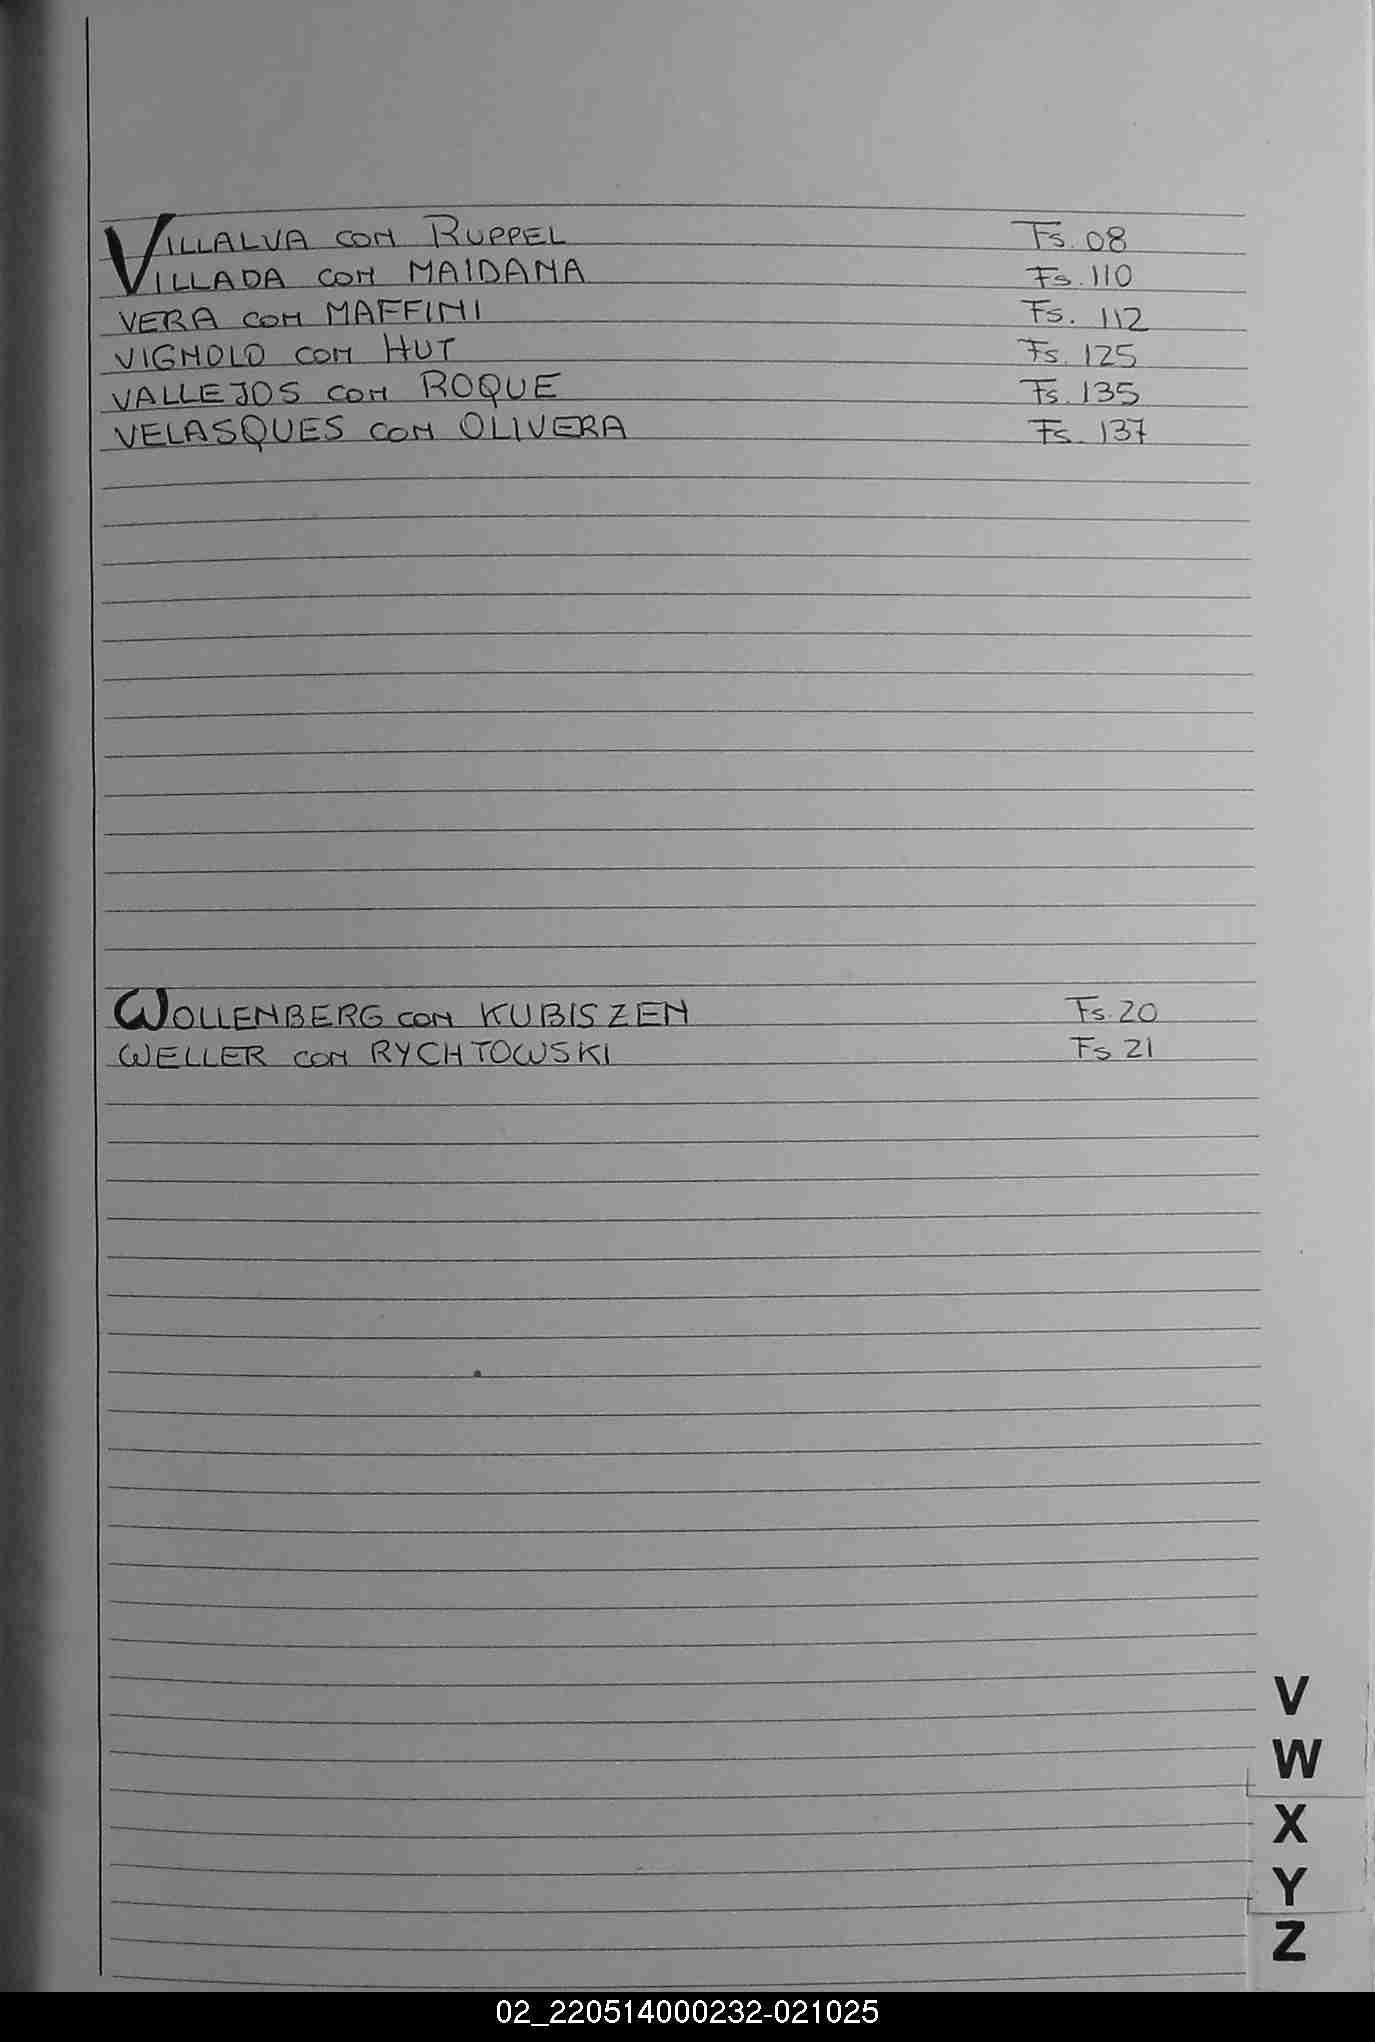 VILLALVA CON RUPPEL Fs. 08
VILLADA CON MAIDANA Fs. 110
VERA CON MAFFINI Fs. 112
VIGNOLO CON HUT Fs. 125
VALLEJOS CON ROQUE Fs. 135
VELASQUES CON OLIVERA Fs. 137
WOLLENBERG CON KUBISZEN Fs. 20
WELLER CON RYCHTOWSKI Fs 21
V
W
X
Y
Z
02_220514000232-021025